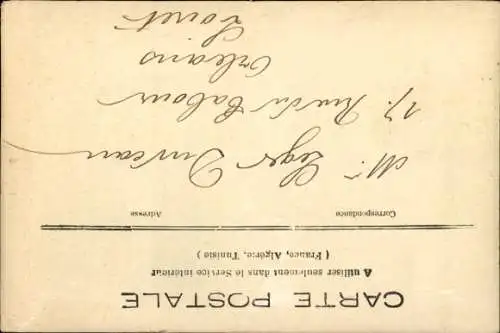 CARTE POSTALE
A utiliser seulement dans le Service intérieur
( France, Algérie, Tunisie )
Correspondance Adresse
Mr Leger Duveau
17. Rue du Cabour
Orléans
Loiret